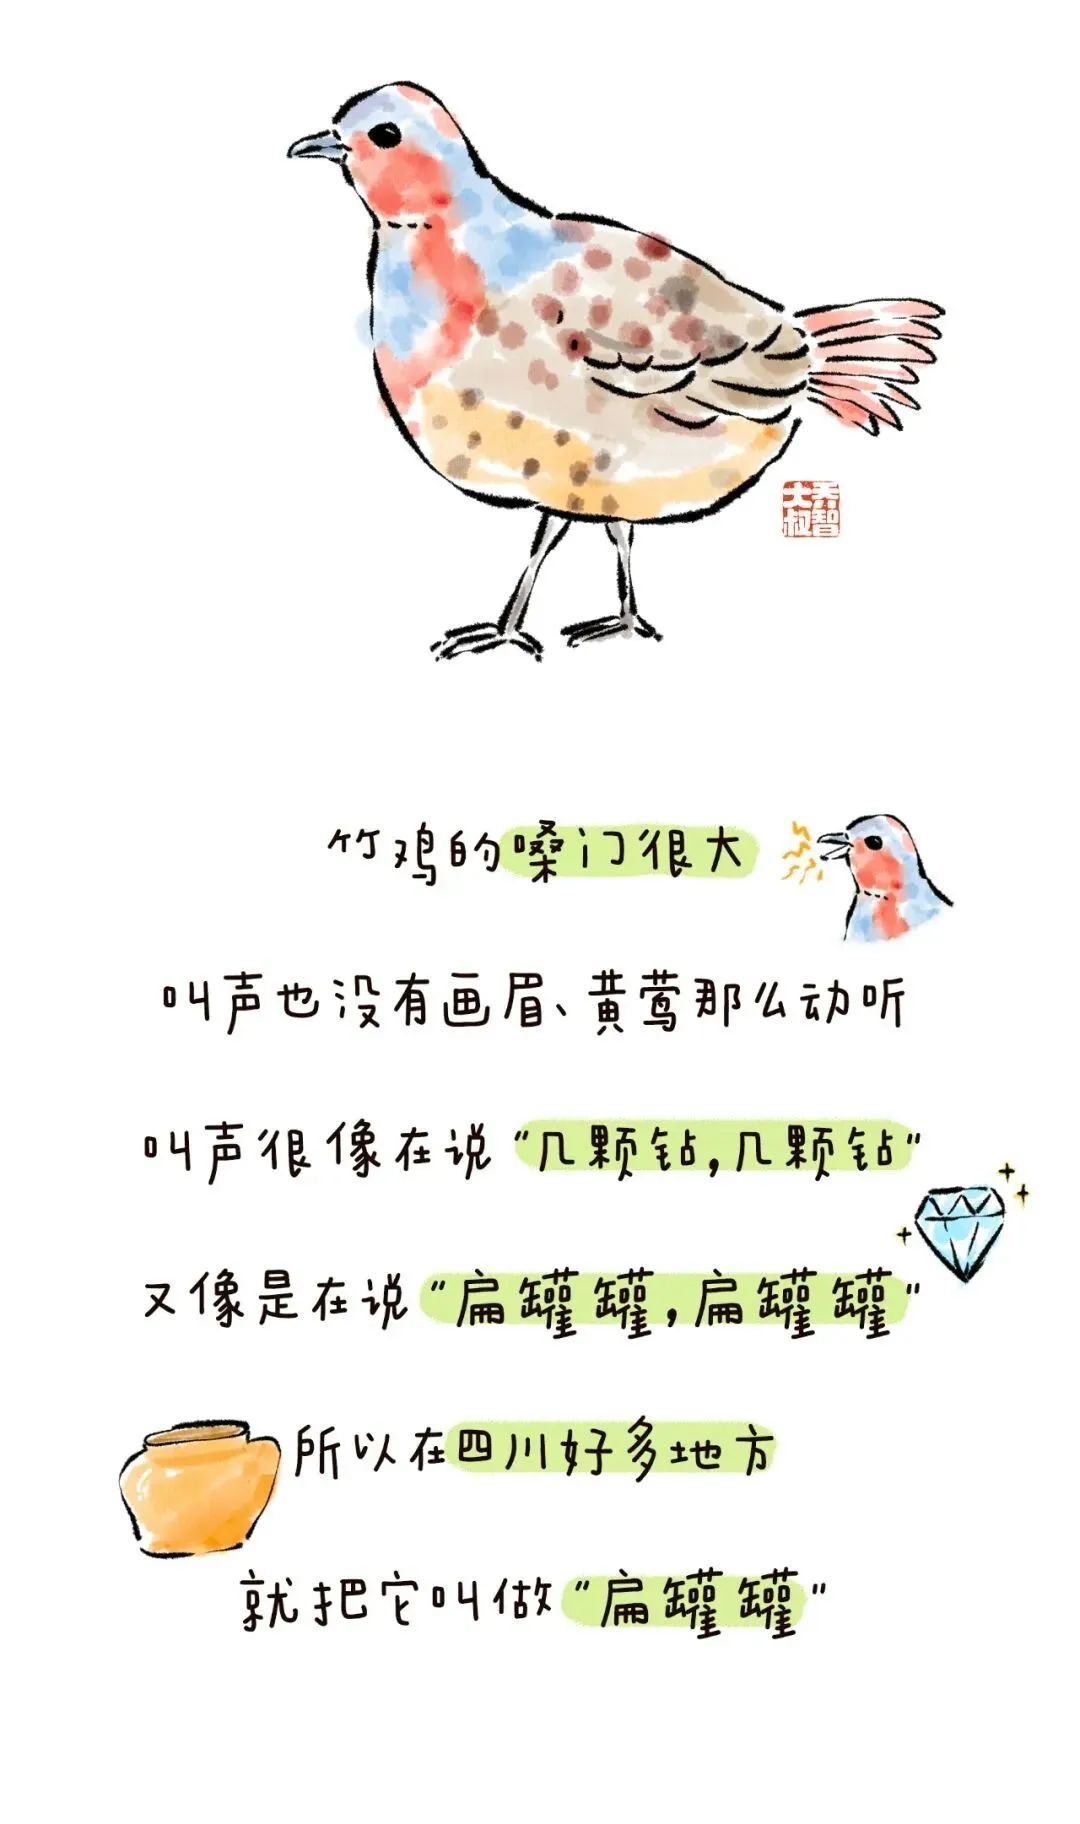 乔智
大叔
竹鸡的嗓门很大
叫声也没有画眉、黄莺那么动听
叫声很像在说"几颗钻,几颗钻"
又像是在说"扁罐罐,扁罐罐"
所以在四川好多地方
就把它叫做"扁罐罐"